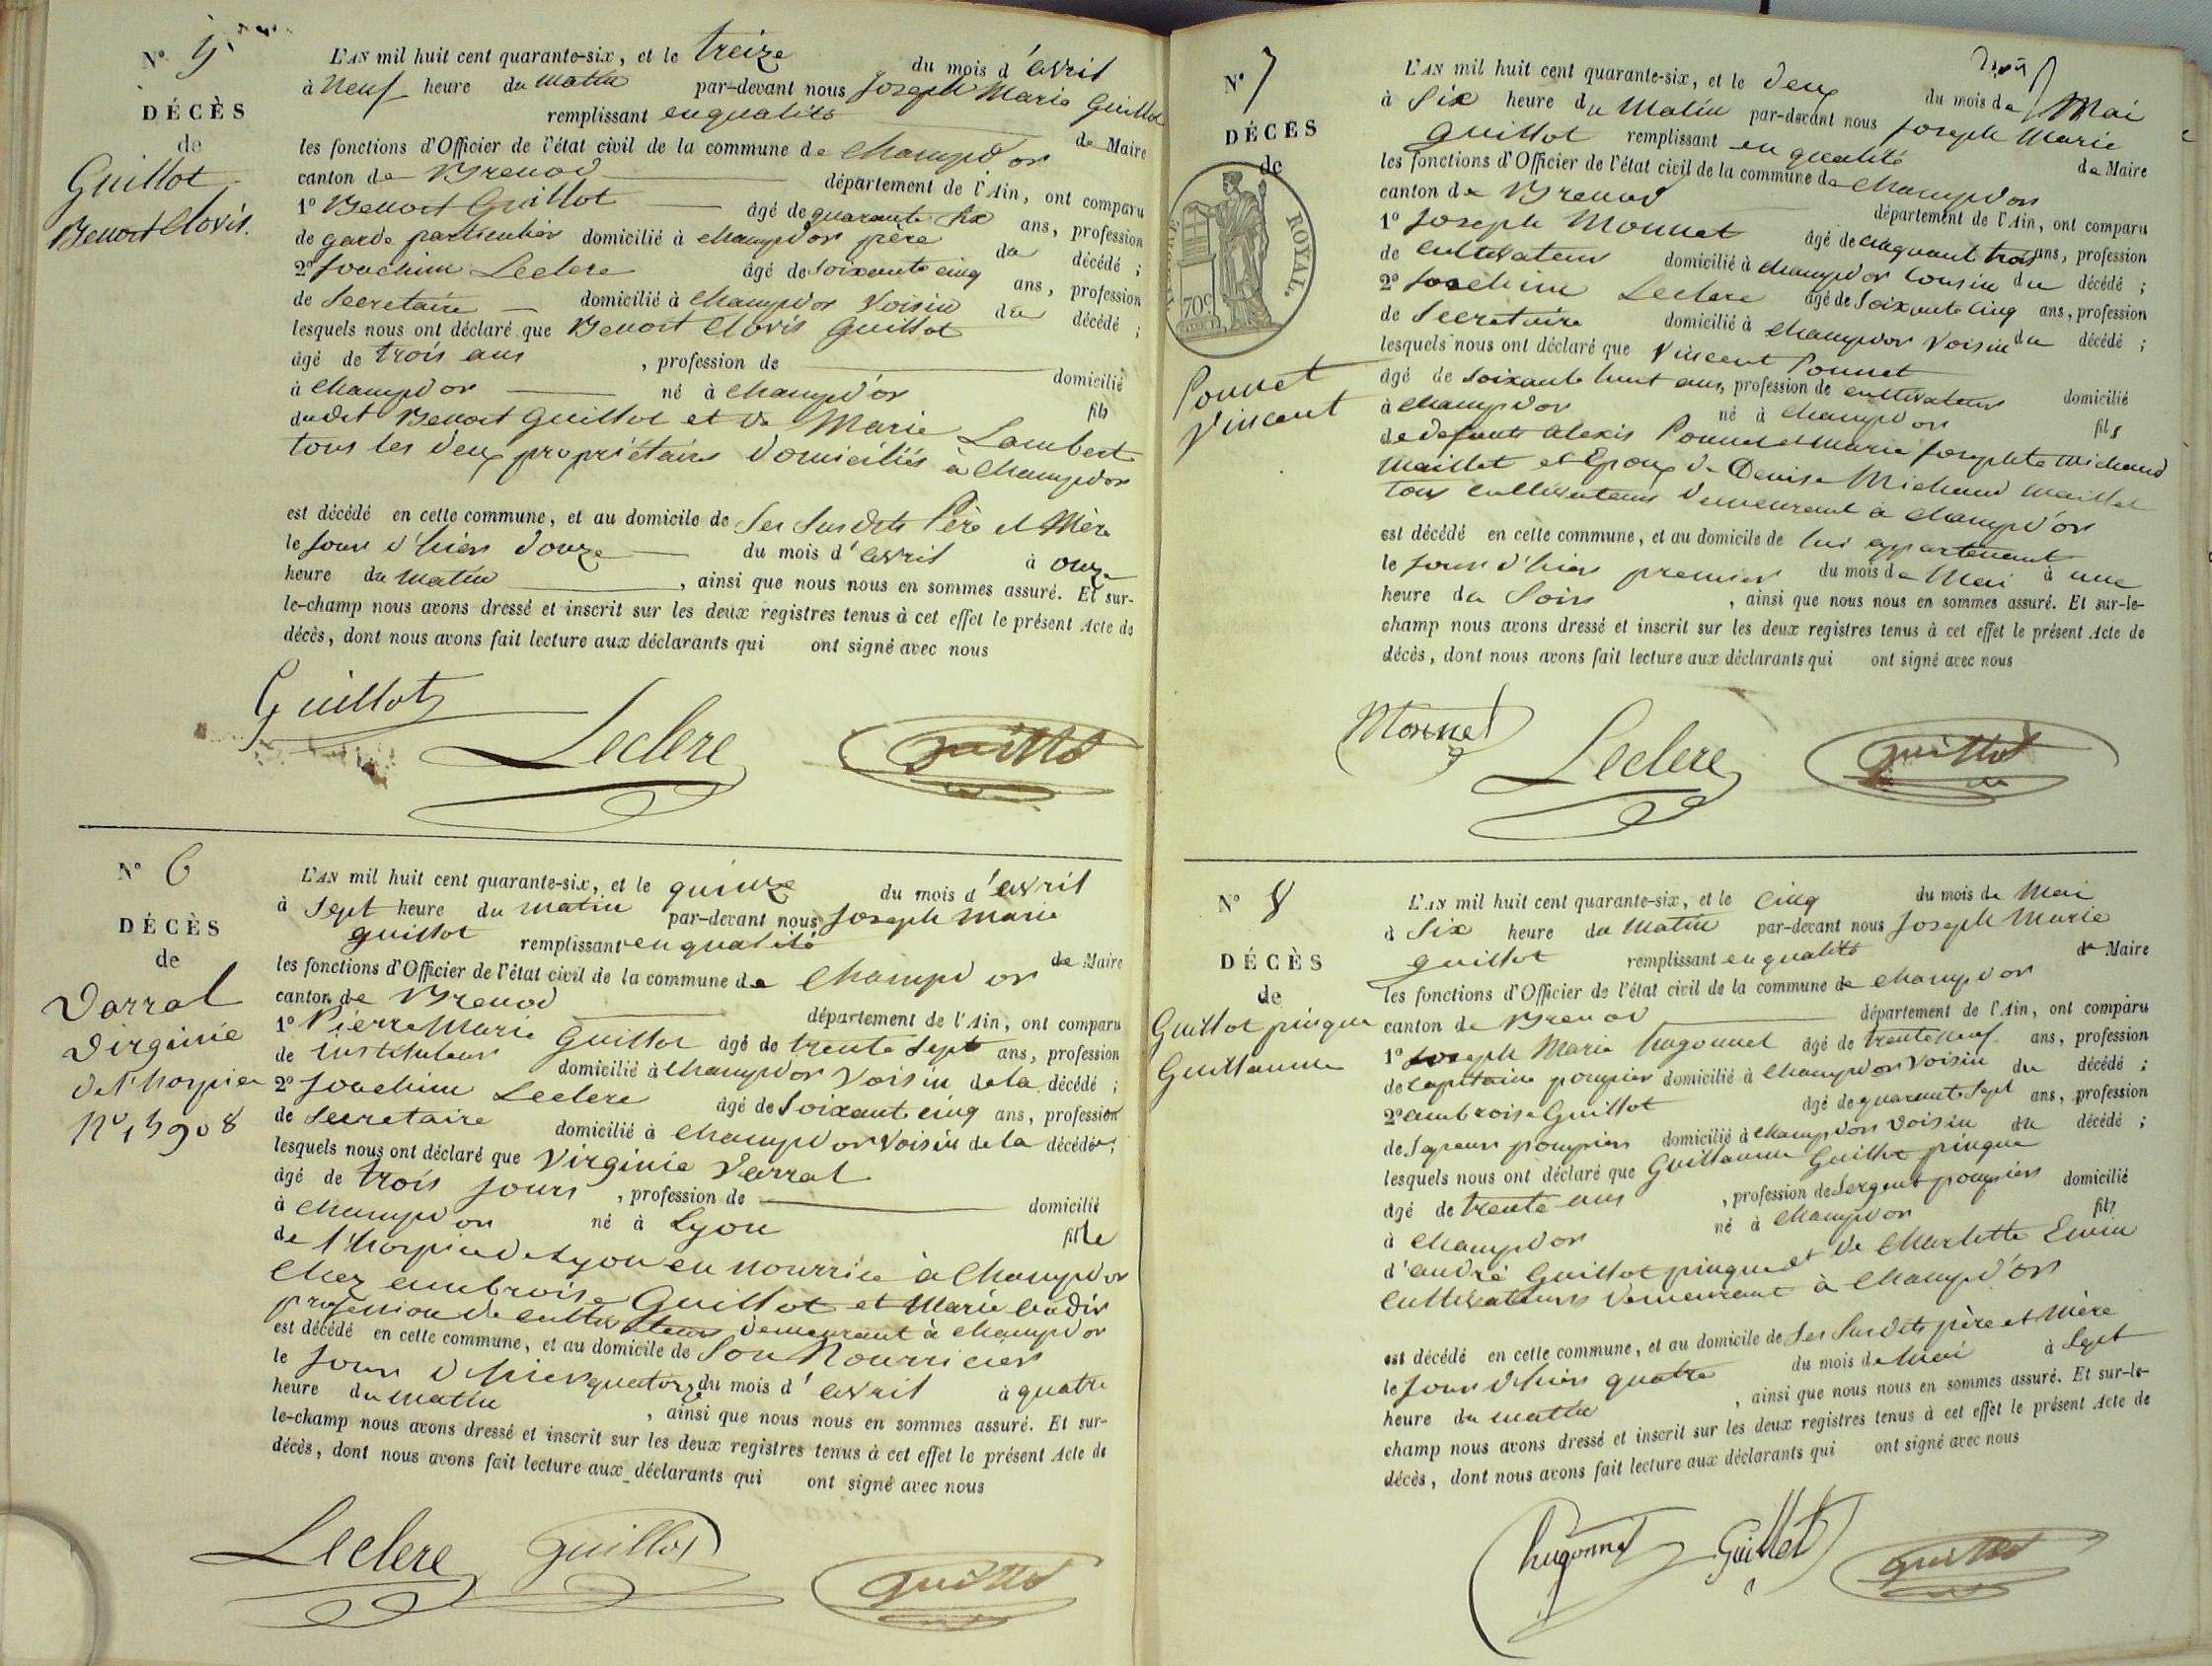 N° 5
DÉCÈS
de
Guillot
Benoit Clovis.
L'AN mil huit cent quarante-six, et le treize du mois d'avril
à neuf heure du matin par-devant nous Joseph Marie Guillot
remplissant en qualité de Maire
les fonctions d'Officier de l'état civil de la commune de Champd'or
canton de Brenod département de l'Ain, ont comparu
1° Benoit Guillot âgé de quarante six ans, profession
de garde particulier domicilié à champd'or père du décédé ;
2° Joachim Leclere âgé de soixante cinq ans, profession
de Secretaire domicilié à Champd'or voisin du décédé ;
lesquels nous ont déclaré que Benoit Clovis Guillot
âgé de trois ans , profession de domicilié
à Champd'or né à Champd'or fils
dudit Benoit Guillot et de Marie Lambert
tous les deux propriétaires domiciliés à Champd'or
est décédé en cette commune, et au domicile de ses susdits Père et Mère
le jour d'hier douze du mois d'avril à onze
heure du matin , ainsi que nous nous en sommes assuré. Et sur-
le-champ nous avons dressé et inscrit sur les deux registres tenus à cet effet le présent Acte de
décès, dont nous avons fait lecture aux déclarants qui ont signé avec nous
Guillot Leclere Guillot
N° 6
DÉCÈS
de
Darral
Virginie
de l'hospice
N° 13908
L'AN mil huit cent quarante-six, et le quinze du mois d'avril
à Sept heure du matin par-devant nous Joseph Marie
Guillot remplissant en qualité de Maire
les fonctions d'Officier de l'état civil de la commune de Champd'or
canton de Brenod département de l'Ain, ont comparu
1° Pierre Marie Guillot âgé de trente sept ans, profession
de instituteur domicilié à Champd'or voisin de la décédé ;
2° Joachim Leclere âgé de soixante cinq ans, profession
de Secretaire domicilié à Champd'or voisin de la décédée ;
lesquels nous ont déclaré que Virginie Darral
âgé de trois jours , profession de domicilié
à Champd'or né à Lyon fille
de l'hospice de Lyon en nourrice à Champd'or
chez ambroise Guillot et Marie
profession de cultivateurs demeurant à champd'or
est décédé en cette commune, et au domicile de Son Nourricier
le jour d'hier quatorze du mois d'avril à quatre
heure du matin , ainsi que nous nous en sommes assuré. Et sur-
le-champ nous avons dressé et inscrit sur les deux registres tenus à cet effet le présent Acte de
décès, dont nous avons fait lecture aux déclarants qui ont signé avec nous
Leclere Guillot Guillot
N° 7
DÉCÈS
de
ROYAL.
70c
Ponnet
Vincent
L'AN mil huit cent quarante-six, et le deux du mois de Mai
à Six heure du Matin par-devant nous Joseph Marie
Guillot remplissant en qualité de Maire
les fonctions d'Officier de l'état civil de la commune de Champd'or
canton de Brenod département de l'Ain, ont comparu
1° Joseph Monnet âgé de cinquant trois ans, profession
de Cultivateur domicilié à champd'or Cousin du décédé ;
2° Joachim Leclere âgé de Soixante Cinq ans, profession
de Secretaire domicilié à Champd'or voisin du décédé ;
lesquels nous ont déclaré que Vincent Ponnet
âgé de soixante huit ans, profession de cultivateur domicilié
à Champd'or né à Champd'or fils
de defunts alexis Ponnet et Marie Josephte Michaud
Maillet et Epoux de Denise Michaud Maillet
tous cultivateurs demeurant à champd'or
est décédé en cette commune, et au domicile de lui appartenant
le jour d'hier premier du mois de Mai à une
heure du Soir , ainsi que nous nous en sommes assuré. Et sur-le-
champ nous avons dressé et inscrit sur les deux registres tenus à cet effet le présent Acte de
décès, dont nous avons fait lecture aux déclarants qui ont signé avec nous
Monnet Leclere Guillot
N° 8
DÉCÈS
de
Guillot pingue
Guillaume
L'AN mil huit cent quarante-six, et le cinq du mois de Mai
à Six heure du Matin par-devant nous Joseph Marie
Guillot remplissant en qualité de Maire
les fonctions d'Officier de l'état civil de la commune de Champd'or
canton de Brenod département de l'Ain, ont comparu
1° Joseph Marie hugonnet âgé de trente neuf ans, profession
de Capitaine pompier domicilié à Champd'or voisin du décédé ;
2° ambroise Guillot âgé de quarante sept ans, profession
de Sapeur pompier domicilié à Champd'or voisin du décédé ;
lesquels nous ont déclaré que Guillaume Guillot pingue
âgé de trente ans , profession de Sergent pompier domicilié
à Champd'or né à Champd'or fils
d'andré Guillot pingue et de Charlotte
Cultivateurs demeurant à Champd'or
est décédé en cette commune, et au domicile de ses susdits père et mère
le jour d'hier quatre du mois de Mai à Sept
heure du matin , ainsi que nous nous en sommes assuré. Et sur-le-
champ nous avons dressé et inscrit sur les deux registres tenus à cet effet le présent Acte de
décès, dont nous avons fait lecture aux déclarants qui ont signé avec nous
hugonnet Guillot Guillot